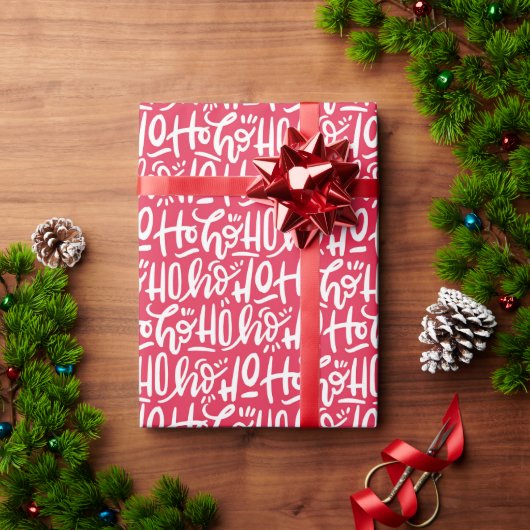 HO Ho ho HO
HO Ho ho HO
HO ho HO Ho ho HO
Ho ho HO ho HO Ho
HO ho HO Ho ho HO
Ho ho HO ho HO